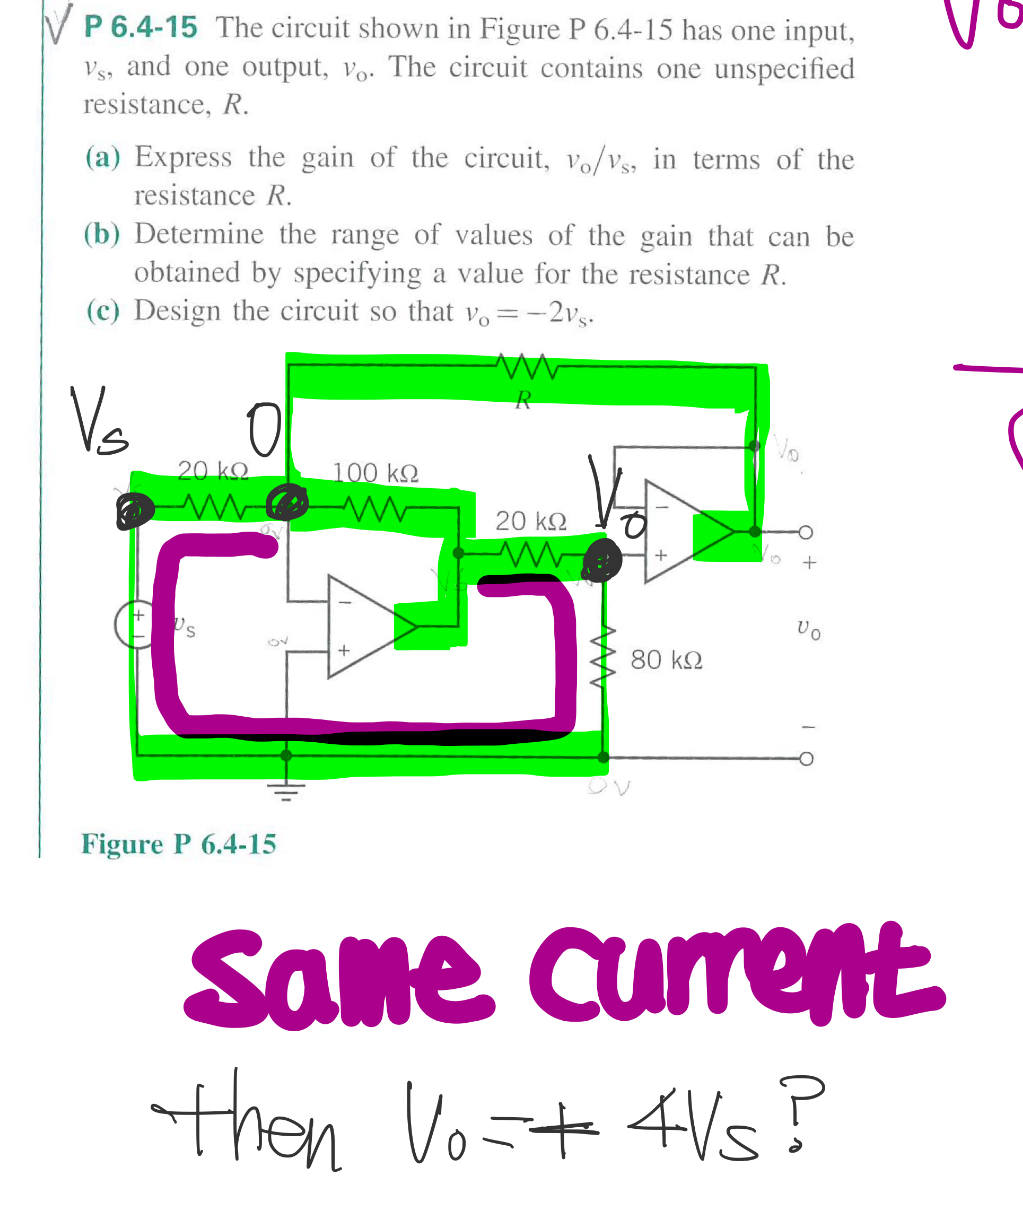 √ P 6.4-15 The circuit shown in Figure P 6.4-15 has one input,
vs, and one output, vo. The circuit contains one unspecified
resistance, R.
(a) Express the gain of the circuit, vo/vs, in terms of the
resistance R.
(b) Determine the range of values of the gain that can be
obtained by specifying a value for the resistance R.
(c) Design the circuit so that vo = −2vs.
R
Vs
0
Vo
20 kΩ
100 kΩ
Vo
20 kΩ
−
+
Vo
+
0V
+
−
vs
−
+
0V
80 kΩ
vo
−
0V
Figure P 6.4-15
Same current
then Vo = + 4Vs?